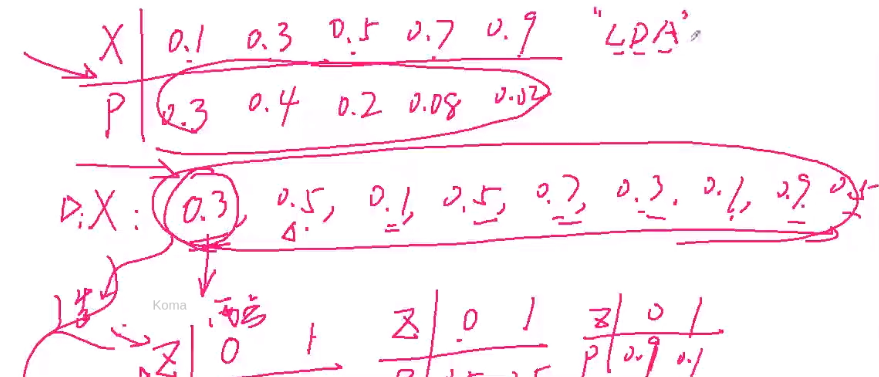 X 0.1 0.3 0.5 0.7 0.9 "LDA"
P 0.3 0.4 0.2 0.08 0.02
D:X: 0.3, 0.5, 0.1, 0.5, 0.7, 0.3, 0.1, 0.9
Koma
Z 0 1
Z 0 1
Z 0 1
P 0.9 0.1